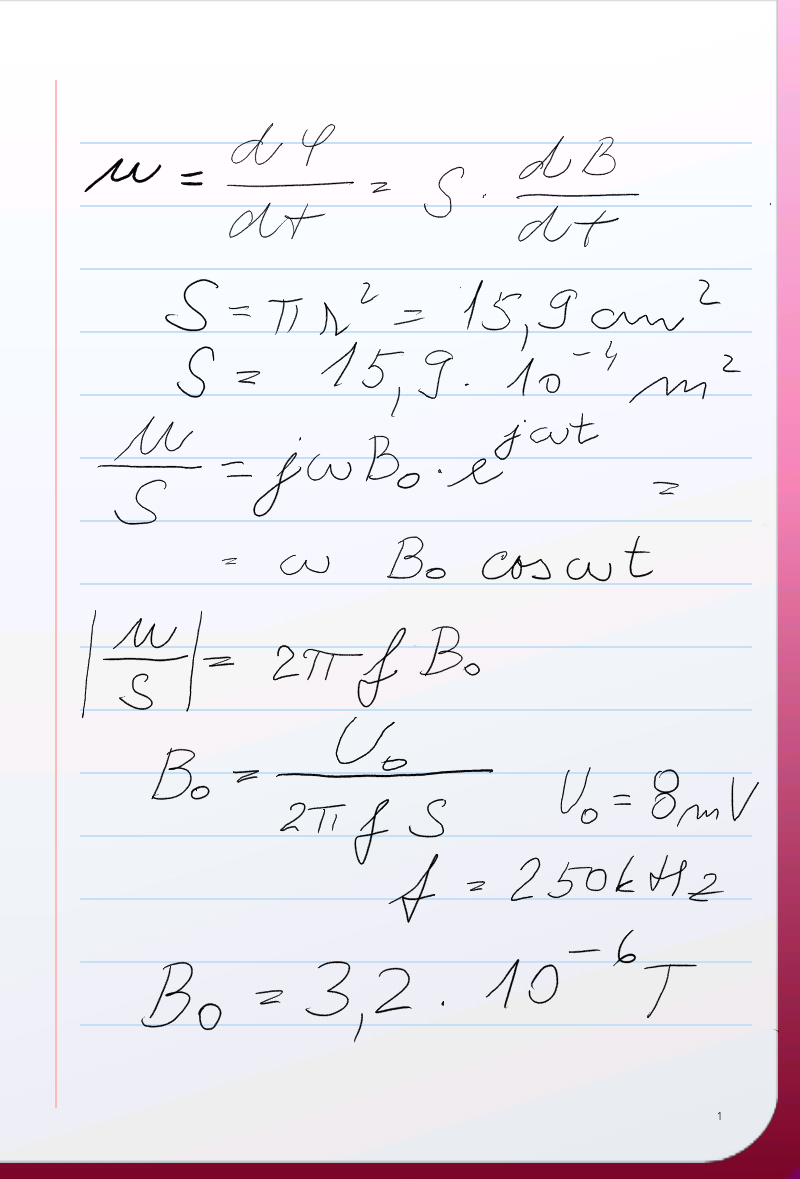 u = dφ/dt = S · dB/dt
S = πr² = 15,9 cm²
S = 15,9 · 10⁻⁴ m²
u/S = jωB₀ · e^jωt =
= ω B₀ cos ωt
|u/S| = 2πf B₀
B₀ = U₀/2πfS U₀ = 8mV
f = 250kHz
B₀ = 3,2 · 10⁻⁶ T
1